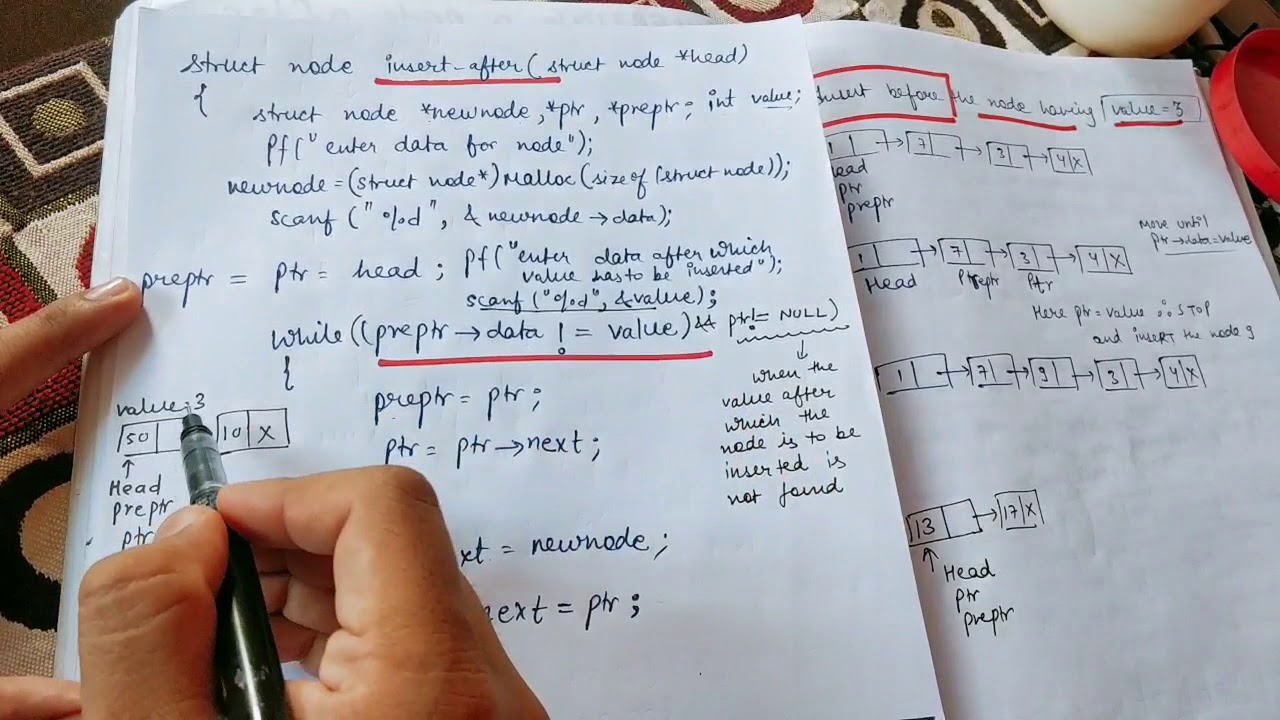 struct node insert-after(struct node *head)
{
struct node *newnode, *ptr, *preptr; int value;
Pf("enter data for node");
newnode=(struct node*)Malloc(size of (struct node));
scanf ("%d", & newnode→data);
preptr = ptr = head; Pf("enter data after which
value has to be inserted");
scanf("%d", &value);
while((preptr→data != value)&& ptr!= NULL)
{
preptr = ptr;
ptr = ptr→next;
when the
value after
which the
node is to be
inserted is
not found
value=3
50 10 X
Head
preptr
ptr
xt = newnode;
next = ptr;
Insert before the node having value=3
1 7 3 4 X
Head
ptr
preptr
Move until
ptr→data=value
1 7 3 4 X
Head Preptr Ptr
Here ptr=value ∴ STOP
and insert the node 9
1 7 9 3 4 X
13 17 X
Head
ptr
preptr